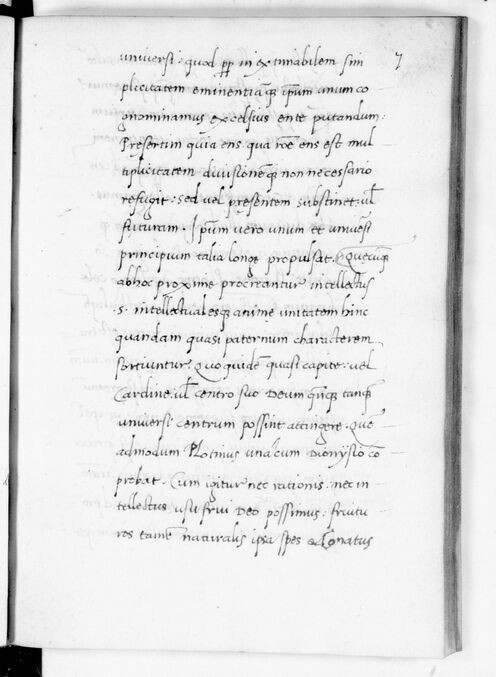 7
universi: quod pp̄ inextimabilem sim
plicitatem eminentiāqȝ ipsum unum co
gnominamus excelsius ente putandum:
Presertim quia ens qua roē ens est mul
tiplicitatem divisionēqȝ non necessario
refugit: sed vel presentem substinet: ul̄
futuram. Ipsum vero unum et universi
principium talia longe propulsat. Quecūqȝ
abhoc proxime procreantur intellectus
.s. intellectualesqȝ anime unitatem hinc
quandam quasi paternum characterem
sortiuntur. Quo quidē quasi capite: vel
Cardine ul̄ centro suo Deum tanqȝ
universi centrum possint attingere. Quē
admodum Plotinus unacum Dionysio cō
probat. Cum igitur nec rationis. nec in
tellectus usu frui Deo possimus: fruitu
ros tamē naturalis ipsa spes & Conatus